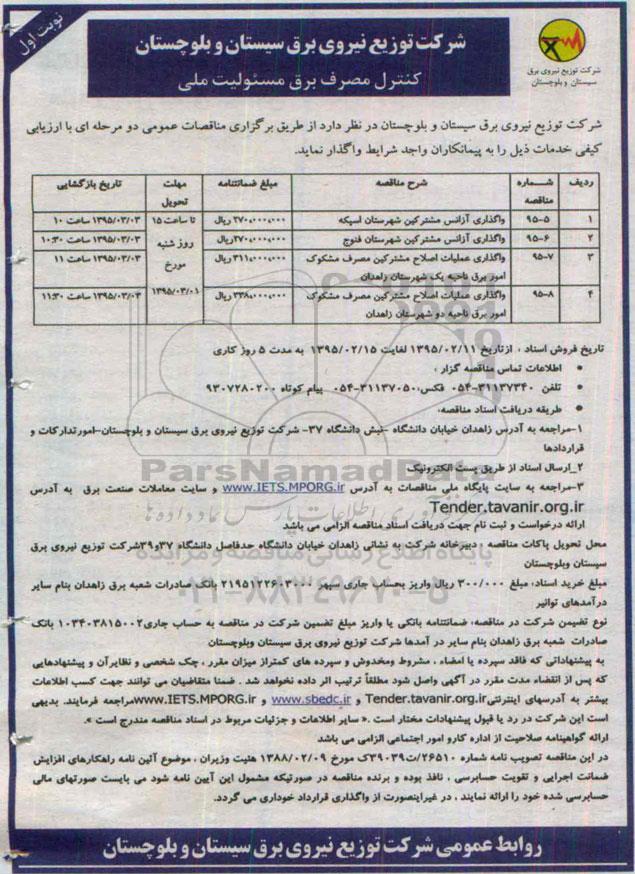 نوبت اول
شرکت توزیع نیروی برق سیستان و بلوچستان
کنترل مصرف برق مسئولیت ملی
شرکت توزیع نیروی برق
سیستان و بلوچستان
شرکت توزیع نیروی برق سیستان و بلوچستان در نظر دارد از طریق برگزاری مناقصات عمومی دو مرحله ای با ارزیابی
کیفی خدمات ذیل را به پیمانکاران واجد شرایط واگذار نماید.
ردیف شماره مناقصه شرح مناقصه مبلغ ضمانتنامه مهلت تحویل تاریخ بازگشایی
۱ ۹۵-۵ واگذاری آژانس مشترکین شهرستان اسپکه ۲۷۰,۰۰۰,۰۰۰ ریال تا ساعت ۱۵ ۱۳۹۵/۰۳/۰۳ ساعت ۱۰
۲ ۹۵-۶ واگذاری آژانس مشترکین شهرستان فنوج ۲۷۰,۰۰۰,۰۰۰ ریال روز شنبه ۱۳۹۵/۰۳/۰۳ ساعت ۱۰:۳۰
۳ ۹۵-۷ واگذاری عملیات اصلاح مشترکین مصرف مشکوک ۳۱۱,۰۰۰,۰۰۰ ریال مورخ ۱۳۹۵/۰۳/۰۳ ساعت ۱۱
امور برق ناحیه یک شهرستان زاهدان
۴ ۹۵-۸ واگذاری عملیات اصلاح مشترکین مصرف مشکوک ۳۳۸,۰۰۰,۰۰۰ ریال ۱۳۹۵/۰۳/۰۱ ۱۳۹۵/۰۳/۰۳ ساعت ۱۱:۳۰
امور برق ناحیه دو شهرستان زاهدان
تاریخ فروش اسناد ، از تاریخ ۱۳۹۵/۰۲/۱۱ لغایت ۱۳۹۵/۰۲/۱۵ به مدت ۵ روز کاری
• اطلاعات تماس مناقصه گزار :
• تلفن ۳۱۱۳۷۳۴۰-۰۵۴ فکس: ۳۱۱۳۷۰۵۰-۰۵۴ پیام کوتاه ۹۳۰۷۲۸۰۲۰۰
• طریقه دریافت اسناد مناقصه:
۱-مراجعه به آدرس زاهدان خیابان دانشگاه -نبش دانشگاه ۳۷- شرکت توزیع نیروی برق سیستان و بلوچستان-امورتدارکات و
قراردادها
۲_ارسال اسناد از طریق پست الکترونیک
۳-مراجعه به سایت پایگاه ملی مناقصات به آدرس www.IETS.MPORG.ir و سایت معاملات صنعت برق به آدرس
Tender.tavanir.org.ir
ارائه درخواست و ثبت نام جهت دریافت اسناد مناقصه الزامی می باشد
محل تحویل پاکات مناقصه : دبیرخانه شرکت به نشانی زاهدان خیابان دانشگاه حدفاصل دانشگاه ۳۷و۳۹شرکت توزیع نیروی برق
سیستان وبلوچستان
مبلغ خرید اسناد: مبلغ ۳۰۰/۰۰۰ ریال واریز بحساب جاری سپهر بانک صادرات شعبه برق زاهدان بنام سایر
درآمدهای توانیر
نوع تضمین شرکت در مناقصه: ضمانتنامه بانکی یا واریز مبلغ تضمین شرکت در مناقصه به حساب جاری ۱۰۳۴۰۳۸۱۵۰۰۲ بانک
صادرات شعبه برق زاهدان بنام سایر در آمدها شرکت توزیع نیروی برق سیستان وبلوچستان
به پیشنهاداتی که فاقد سپرده یا امضاء ، مشروط ومخدوش و سپرده های کمتراز میزان مقرر ، چک شخصی و نظایرآن و پیشنهادهایی
که پس از انقضاء مدت مقرر در آگهی واصل شود مطلقاً ترتیب اثر داده نخواهد شد . ضمنا متقاضیان می توانند جهت کسب اطلاعات
بیشتر به آدرسهای اینترنتی Tender.tavanir.org.ir و www.sbedc.ir و www.IETS.MPORG.ir مراجعه فرمایند. بدیهی
است این شرکت در رد یا قبول پیشنهادات مختار است .« سایر اطلاعات و جزئیات مربوط در اسناد مناقصه مندرج است ».
ارائه گواهینامه صلاحیت از اداره کارو امور اجتماعی الزامی می باشد
در این مناقصه تصویب نامه شماره ۲۶۵۱۰/ت۳۹۰۳۹ک مورخ ۱۳۸۸/۰۲/۰۹ هئیت وزیران ، موضوع آئین نامه راهکارهای افزایش
ضمانت اجرایی و تقویت حسابرسی ، نافذ بوده و برنده مناقصه در صورتیکه مشمول این آیین نامه شود می بایست صورتهای مالی
حسابرسی شده خود را ارائه نمایند ، در غیراینصورت از واگذاری قرارداد خودداری می گردد.
روابط عمومی شرکت توزیع نیروی برق سیستان و بلوچستان
ParsNamadData
پایگاه اطلاع رسانی مناقصه و مزایده
۰۲۱-۸۸۳۴۹۶۷۰-۵